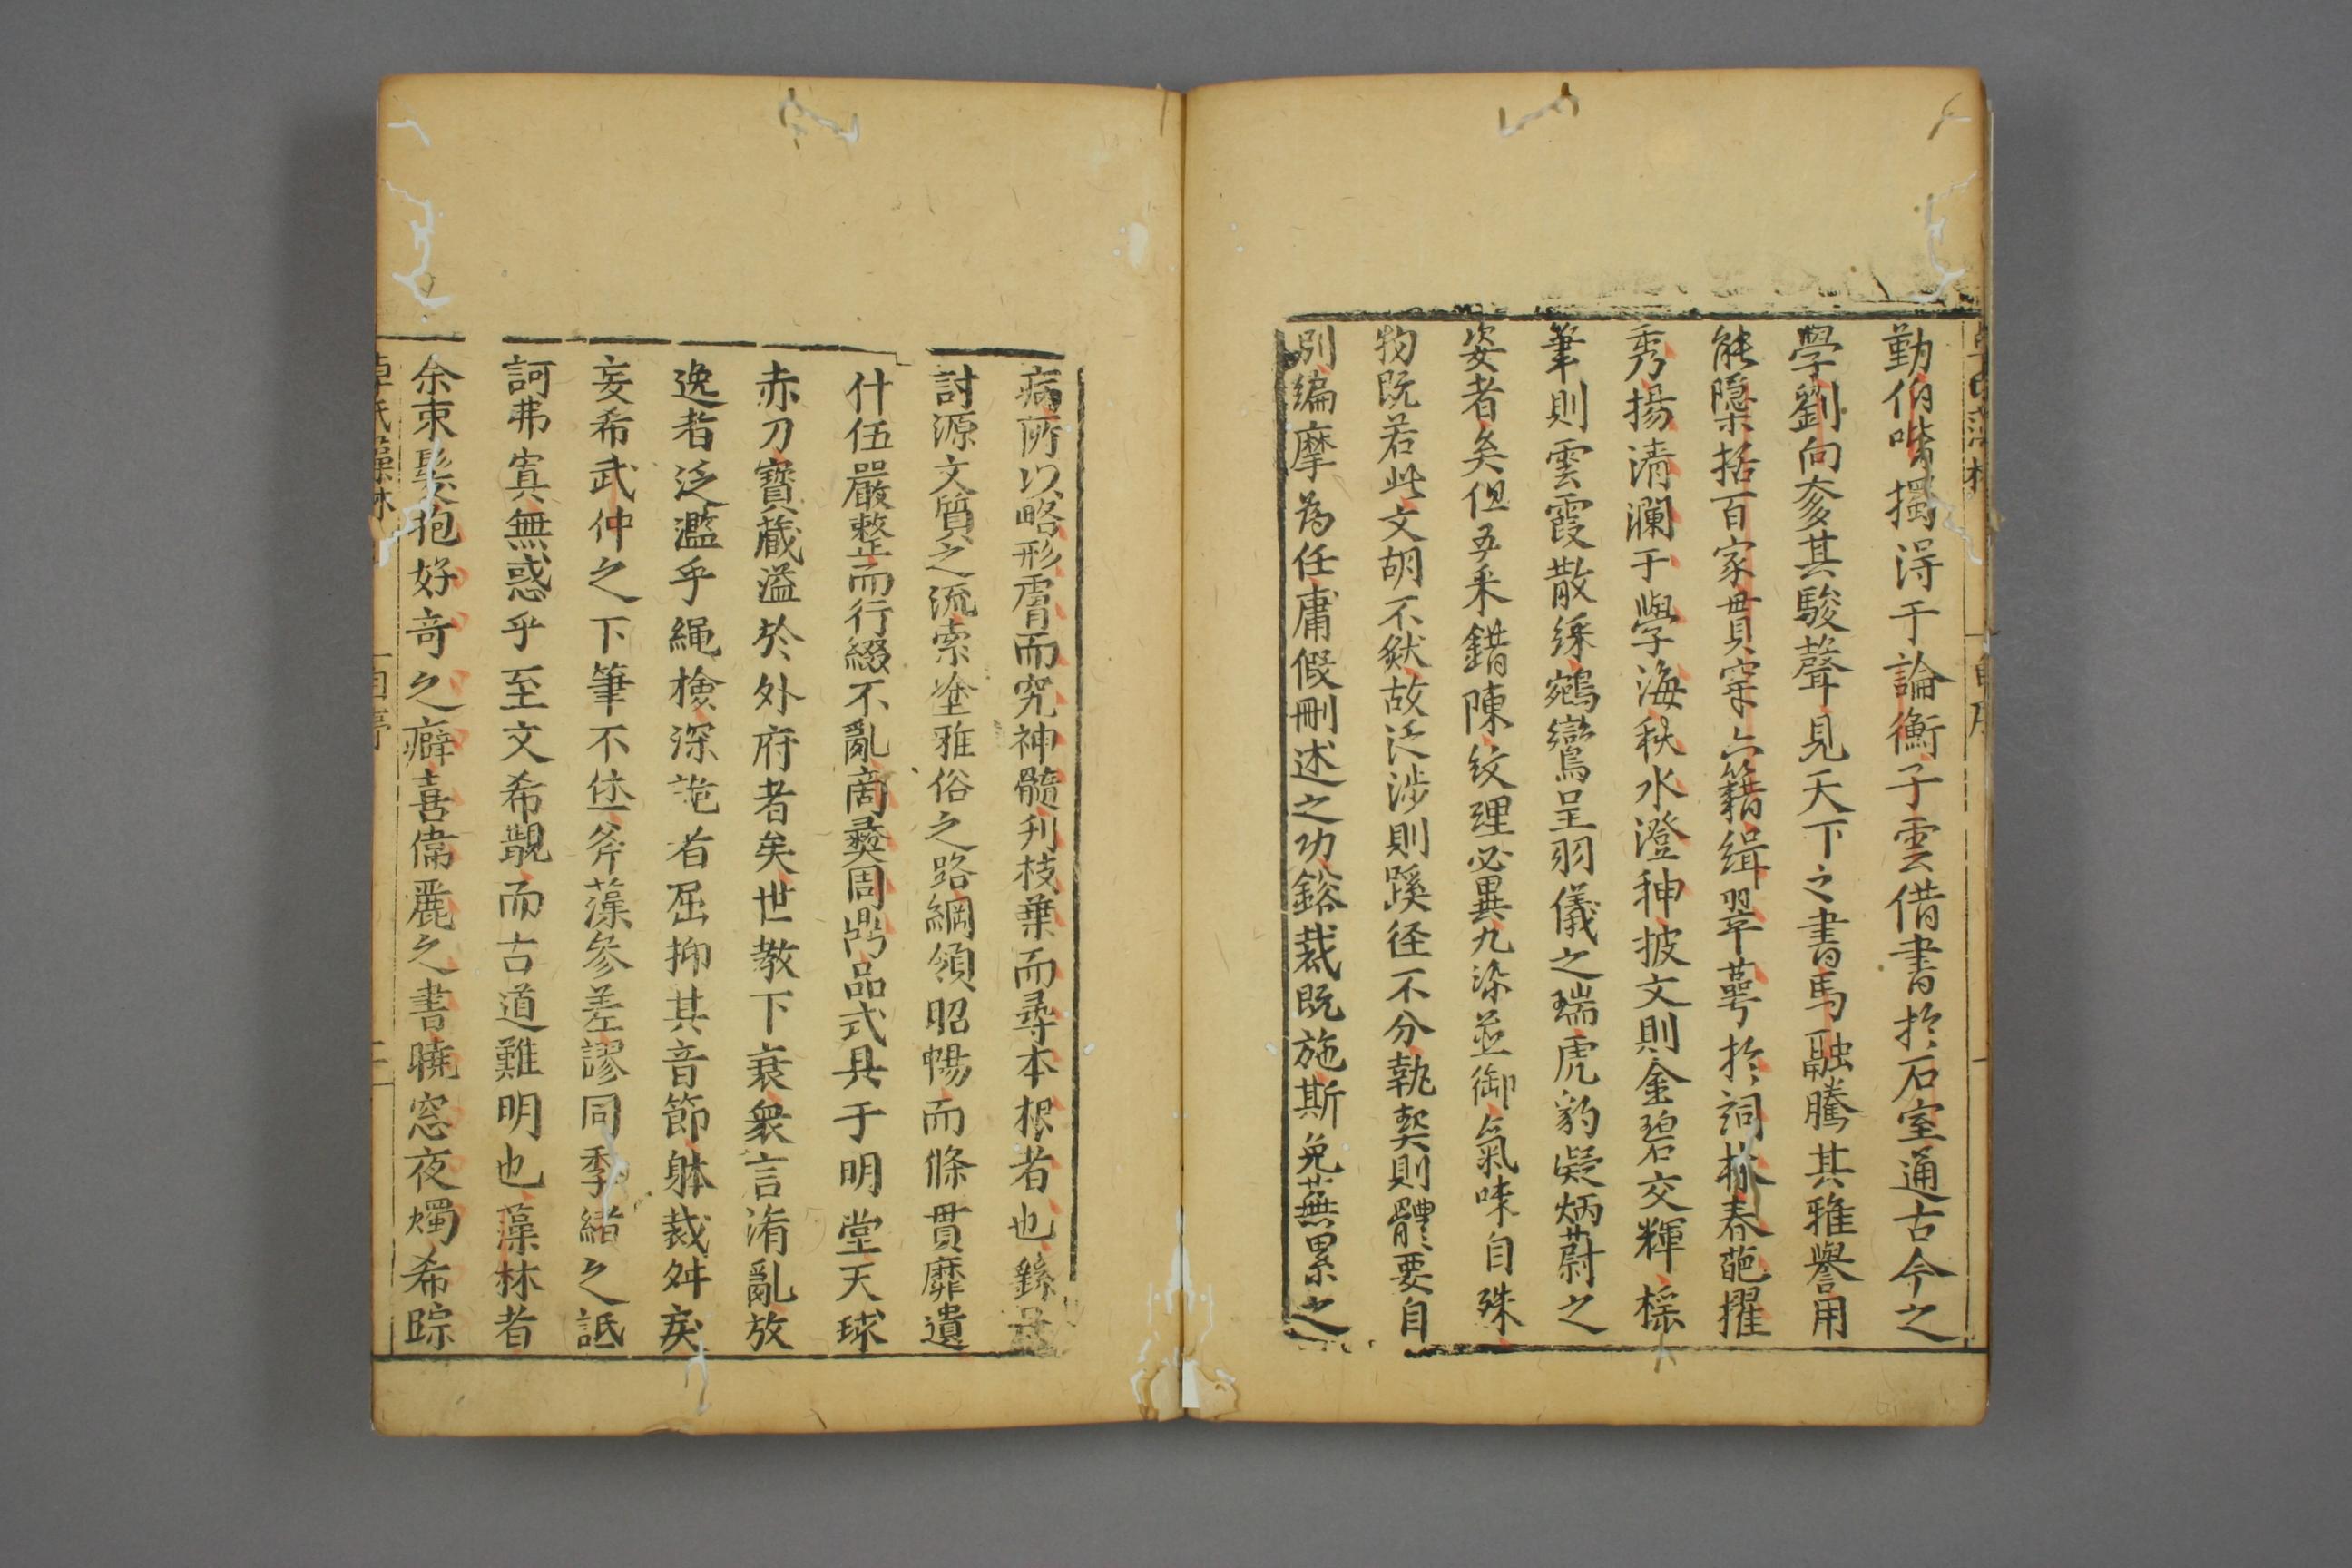 勤伯喈獨淂于論衡子雲借書扵石室通古今之
學劉向奓其駿聲見天下之書馬融騰其雅譽用
能隱栝百家毌貫穿六籍緝翠萼扵詞林春葩擢
秀揚清瀾于學海秋水澄神披文則金碧交輝搖
筆則雲霞散綵鵷鸞呈羽儀之瑞虎豹凝炳蔚之
姿者矣但五采錯陳紋理必異九染並御氣味自殊
物既若此文胡不猷故泛涉則蹊径不分執契則體要自
別編摩為任庸假刪述之功鎔裁既施斯免蕪累之
病所以略形膚而究神髓刋枝葉而尋本根者也繇
討源文質之流索塗雅俗之路綱領昭暢而條貫靡遺
什伍嚴整而行綴不亂商彞周鼎品式具于明堂天球
赤刀寳藏溢於外府者矣世教下衰衆言淆亂放
逸者泛濫乎繩檢深詭者屈抑其音節躰裁舛戾
妄希武仲之下筆不休斧藻參差謬同季緒之詆
訶弗寘無惑乎至文希覯而古道難明也藻林者
余束髮抱好竒之癖喜偉麗之書曉窓夜燭希踪
卓氏藻林